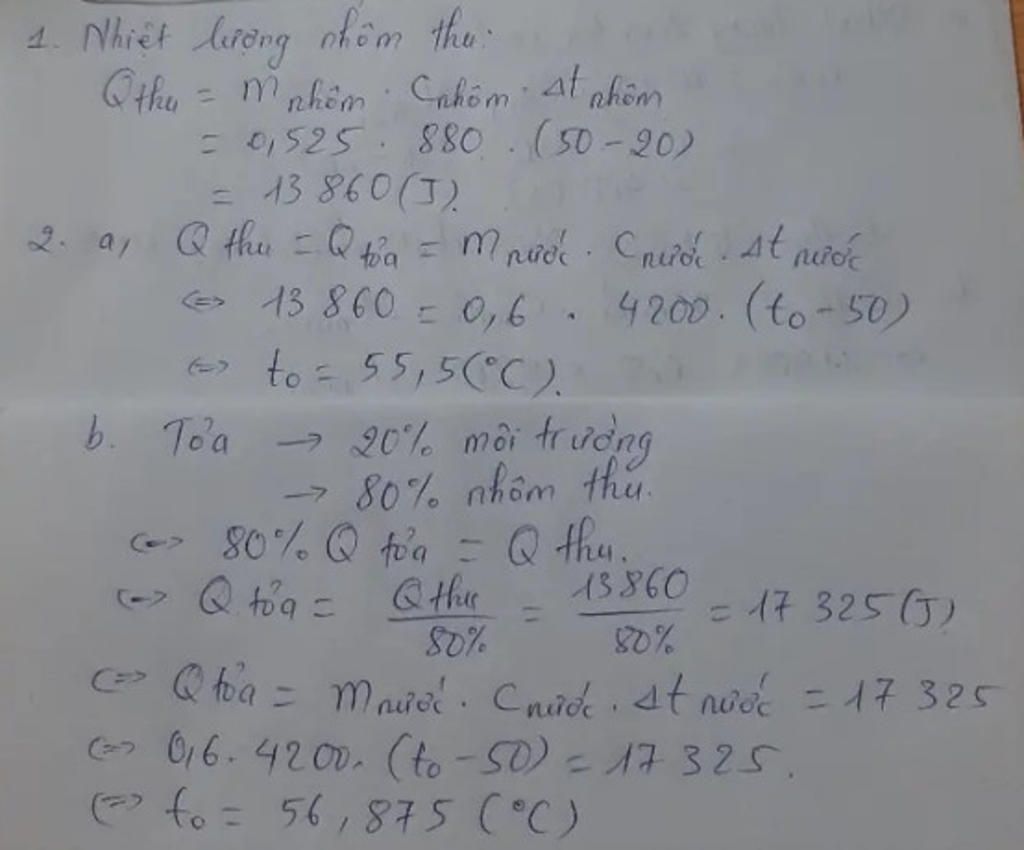 1. Nhiệt lượng nhôm thu:
Q thu = m nhôm . C nhôm . Δt nhôm
= 0,525 . 880 . (50 - 20)
= 13 860 (J).
2. a, Q thu = Q tỏa = m nước . C nước . Δt nước
<=> 13 860 = 0,6 . 4200 . (t₀ - 50)
<=> t₀ = 55,5 (°C).
b. Tỏa → 20% môi trường
→ 80% nhôm thu.
<=> 80% Q tỏa = Q thu.
<=> Q tỏa = Q thu / 80% = 13 860 / 80% = 17 325 (J)
<=> Q tỏa = m nước . C nước . Δt nước = 17 325
<=> 0,6 . 4200 . (t₀ - 50) = 17 325.
<=> t₀ = 56,875 (°C)